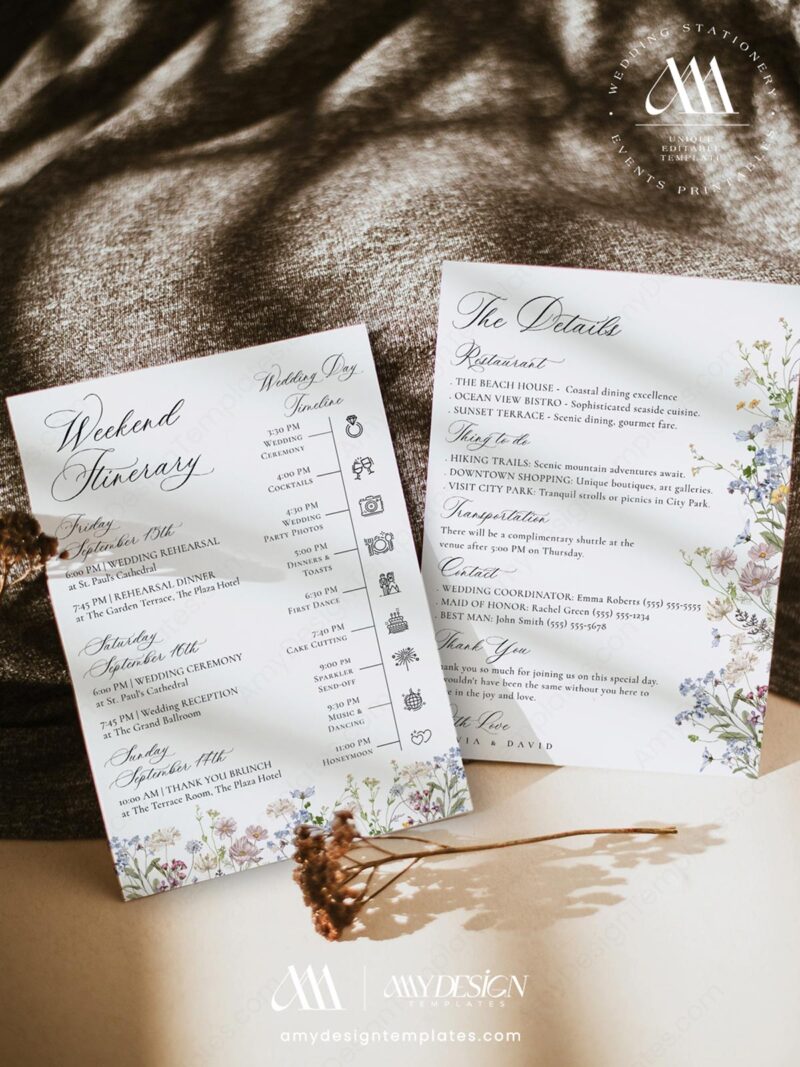 WEDDING STATIONERY
EVENTS PRINTABLES
UNIQUE
EDITABLE
TEMPLATE
Weekend
Itinerary
Friday
September 15th
6:00 PM | WEDDING REHEARSAL
at St. Paul's Cathedral
7:45 PM | REHEARSAL DINNER
at The Garden Terrace, The Plaza Hotel
Saturday
September 16th
6:00 PM | WEDDING CEREMONY
at St. Paul's Cathedral
7:45 PM | Wedding RECEPTION
at The Grand Ballroom
Sunday
September 17th
10:00 AM | THANK YOU BRUNCH
at The Terrace Room, The Plaza Hotel
Wedding Day
Timeline
3:30 PM
WEDDING
CEREMONY
4:00 PM
COCKTAILS
4:30 PM
WEDDING
PARTY PHOTOS
5:00 PM
DINNERS &
TOASTS
6:30 PM
FIRST DANCE
7:40 PM
CAKE CUTTING
9:00 PM
SPARKLER
SEND-OFF
9:30 PM
MUSIC &
DANCING
11:00 PM
HONEYMOON
The Details
Restaurant
. THE BEACH HOUSE - Coastal dining excellence
. OCEAN VIEW BISTRO - Sophisticated seaside cuisine.
. SUNSET TERRACE - Scenic dining, gourmet fare.
Thing to do
. HIKING TRAILS: Scenic mountain adventures await.
. DOWNTOWN SHOPPING: Unique boutiques, art galleries.
. VISIT CITY PARK: Tranquil strolls or picnics in City Park.
Transportation
There will be a complimentary shuttle at the
venue after 5:00 PM on Thursday.
Contact
. WEDDING COORDINATOR: Emma Roberts (555) 555-5555
. MAID OF HONOR: Rachel Green (555) 555-1234
. BEST MAN: John Smith (555) 555-5678
Thank You
hank you so much for joining us on this special day.
wouldn't have been the same without you here to
e in the joy and love.
th Love
VIA & DAVID
AMY DESIGN
TEMPLATES
amydesigntemplates.com